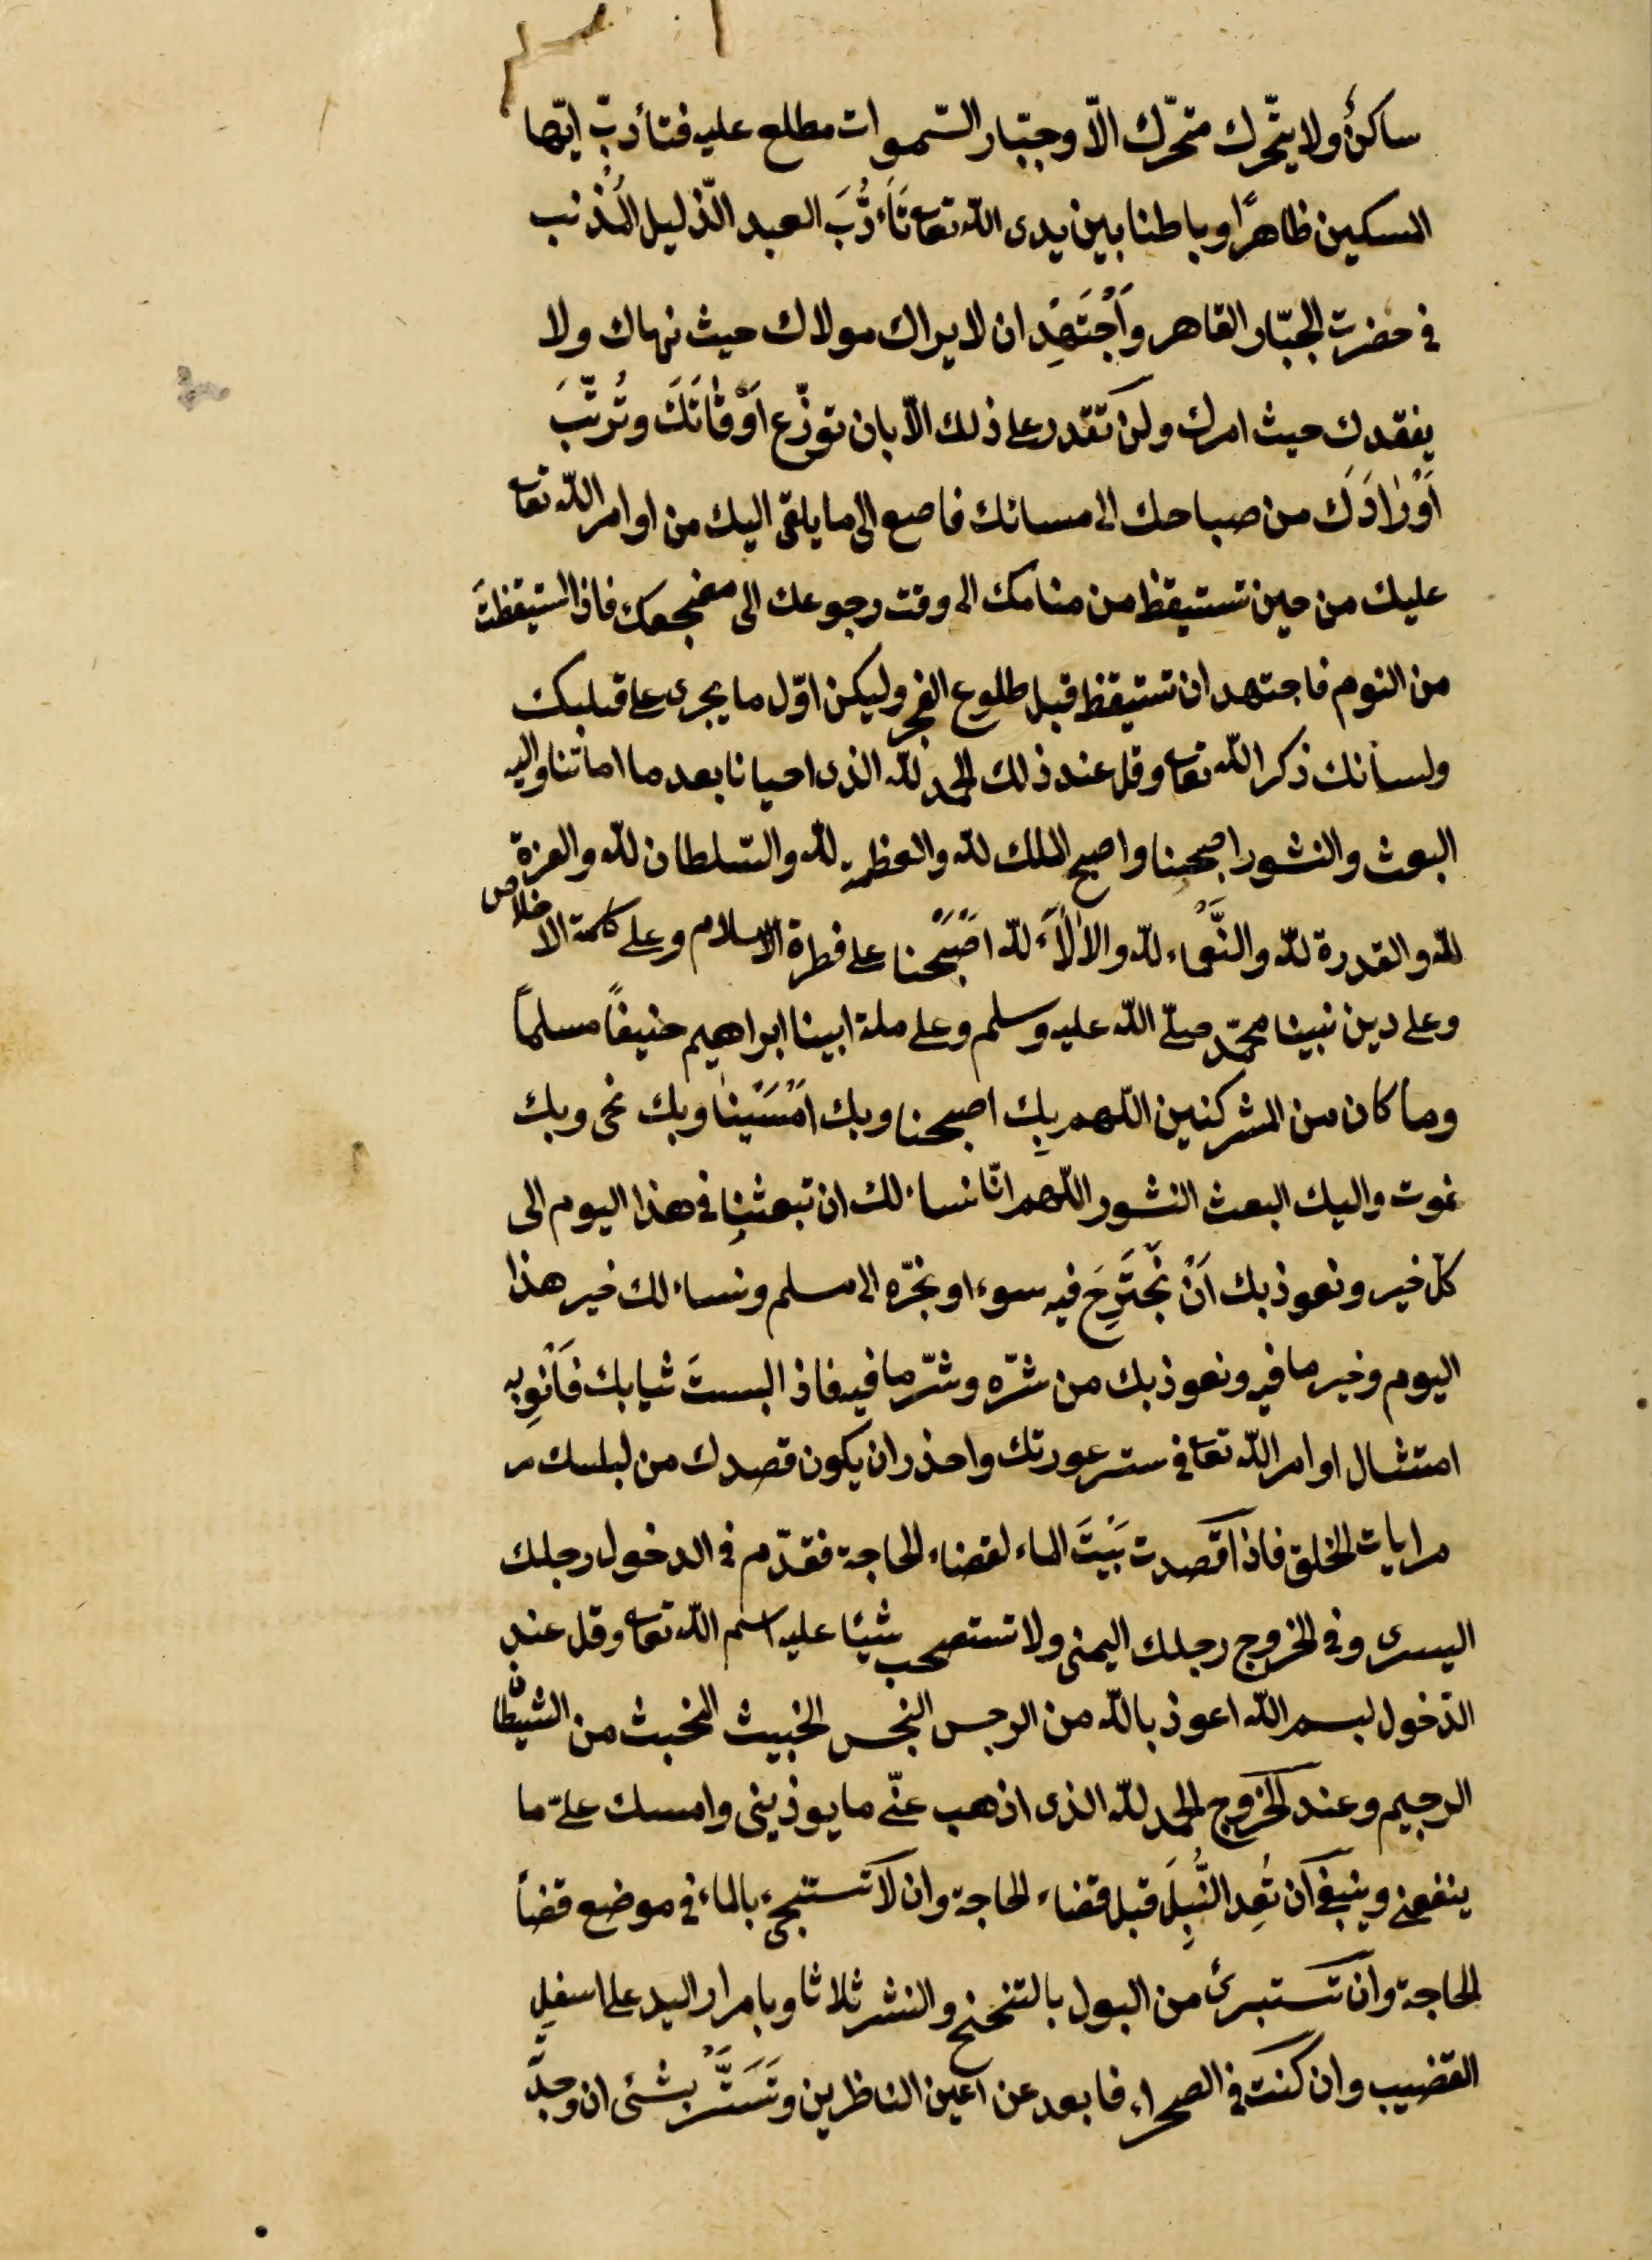 ساكنٌ ولا يتحّرك متحّرك الاّ وجبّار السّموات مطلع عليه فتأدبّ ايّها
المسكين ظاهرًا وباطنا بين يدى الله تعا تَأَدُّبَ العبد الذّليل المُذنب
فى حضرت الجبّار القاهر وَاَجْتَهِدْ ان لا يراك مولاك حيث نهاك ولا
يفقدك حيث امرك ولن تقدر على ذلك الاّ بان توزّع اَوْقَاتَكَ وتُرتّبَ
اَوْرَادَكَ من صباحك الى مسائك فاصع الى ما يلقى اليك من اوامر الله تعا
عليك من حين تستيقظ من منامك الى وقت رجوعك الى مضجعك فاذا استيقظتَ
من النوم فاجتهد ان تستيقظ قبل طلوع الفجر وليكن اوّل ما يجرى على قبلبك
ولسانك ذكر الله تعا وقل عند ذلك الحمد لله الذى احيانا بعد ما اماتنا واليه
البعث والنشور اصبحنا واصبح الملك لله والعظمة لله والسّلطان لله والعزة
لله والقدرة لله والنَّعْماء لله والاٰلَاَءَ لله اَصْبَحْنا على فطرة الاسلام وعلى كلمة الاخلاص
وعلى دين نبينا محمّد صلّى الله عليه وسلم وعلى ملة ابينا ابراهيم حنيفاً مسلماً
وما كان من المشركنين اللهم بِك اصبحنا وبك اَمْسَيْنَا وبك نحى وبك
نموت واليك البعث النشور اللّهم انّا نساءلك ان تبعثنا فى هذا اليوم الى
كلّ خير ونعوذ بك اَنْ نَجْتَرِحَ فيه سوء او نجرّه الى مسلم ونساءلك خير هذا
اليوم وخير ما فيه ونعوذ بك من شرّه وشرّ ما فيه فاذا لبستَ ثيابك فَاَنْوِ به
امتثال اوامر الله تعا فى ستر عورتك واحذر ان يكون قصدك من لبلسك مر
مرايات الخلق فاذا قصدت بَيْتَ الماء لقضاء الحاجة فقدّم فى الدخول رجلك
اليسرى وفى الخروج رجلك اليمنى ولا تستصحب شيئا عليه اسم الله تعا وقل عند
الدّخول بسم الله اعوذ بالله من الرجس النجس الخبيث المخبث من الشيطان
الرجيم وعند الخروج الحمد لله الذى اذهب عنّى ما يوذينى وامسك علىّ ما
ينفعنى وينبغى ان تُعِد النُّبِلَ قبل قضاء الحاجة وان لا تستنجىء بالماء فى موضع قضاً
الحاجة وان تستبرئ من البول بالتنحنح والنشر ثلاثا وبامرار اليد على اسفل
القضيب وان كنت فى الصحراء فابعد عن اعين الناظرين وتَسَتَّرْ بشئى ان وجدّ